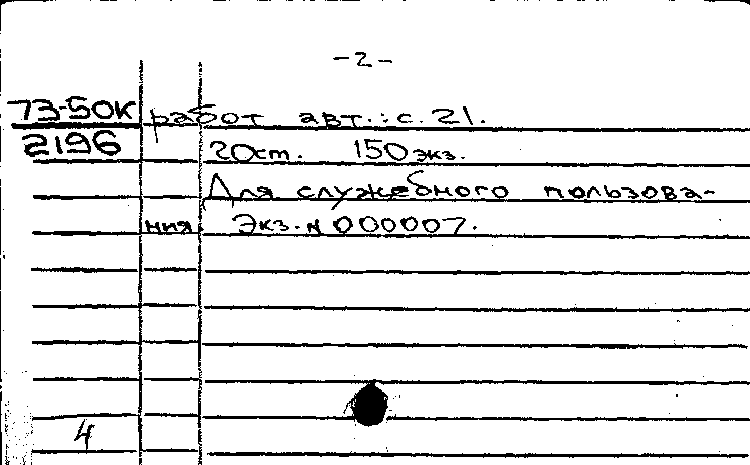 -2-
73-50К работ авт.: с. 21.
2196 20см. 150 экз.
Для служебного пользова-
ния Экз. N 000007.
4